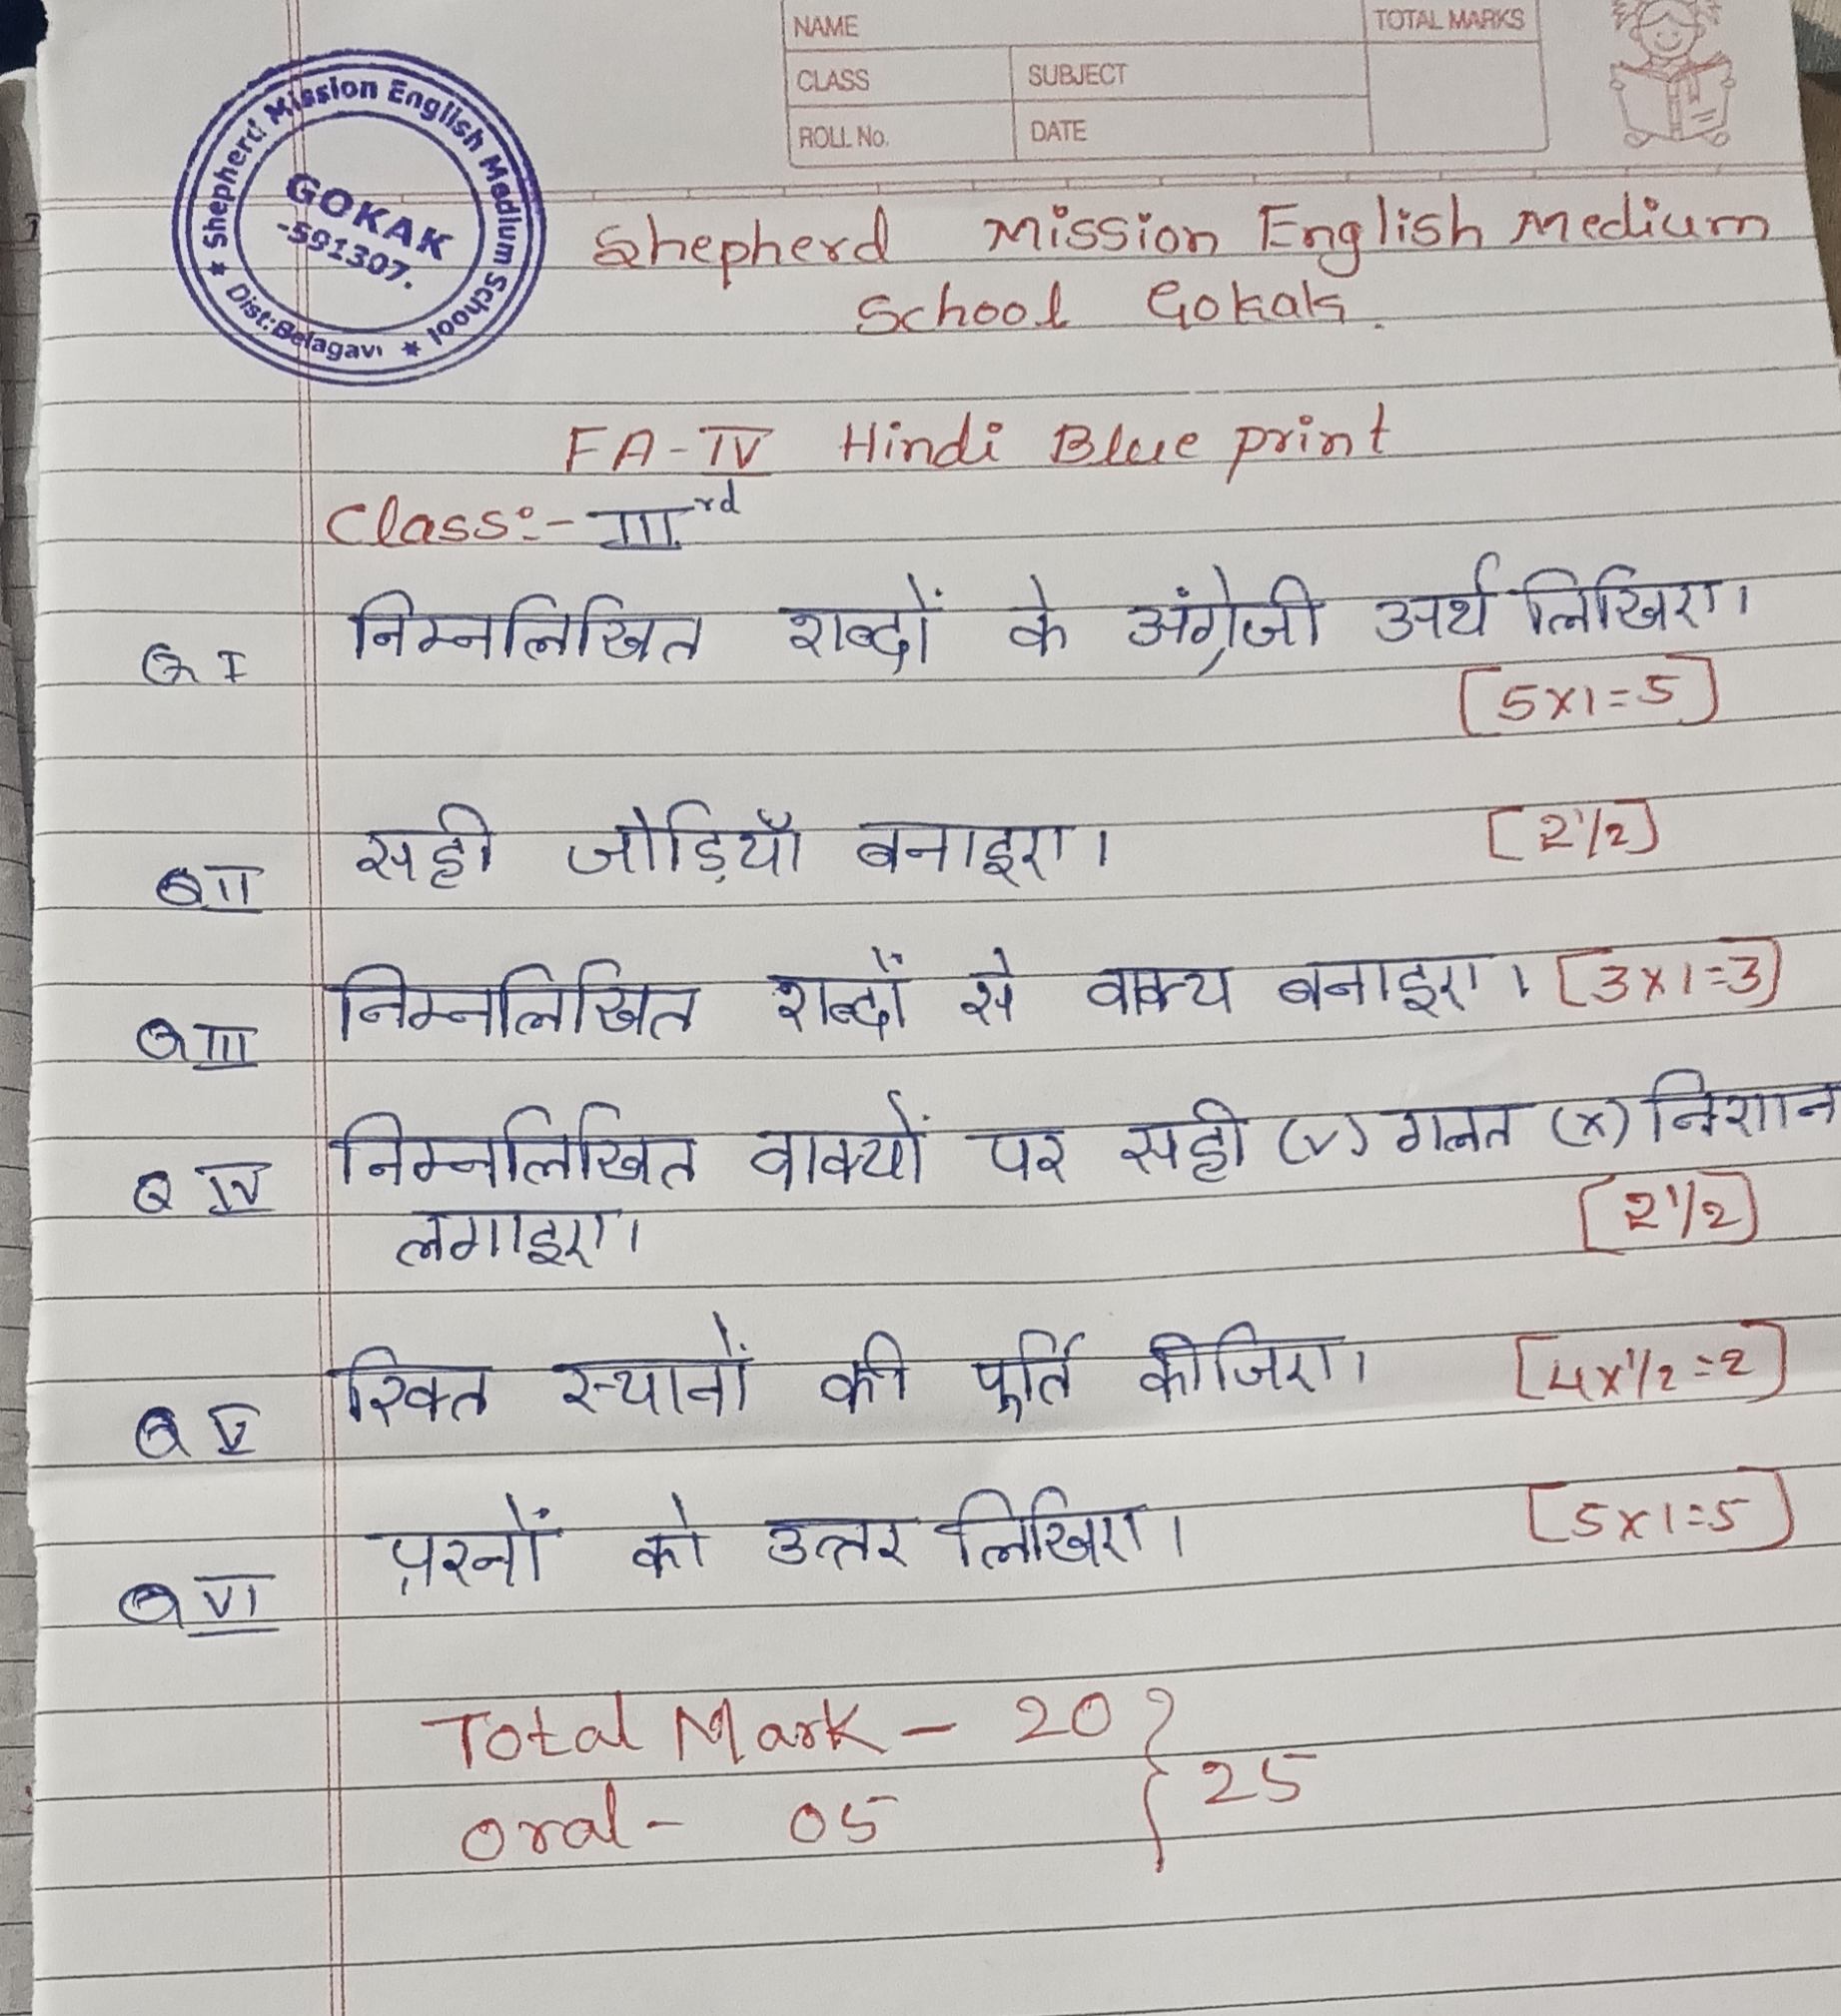 NAME
TOTAL MARKS
CLASS
SUBJECT
ROLL No.
DATE
Shepherd Mission English Medium School
GOKAK
-591307.
★ Dist: Belagavi ★
Shepherd Mission English Medium
School Gokak.
FA-IV Hindi Blue print
Class:- IIIrd
Q I निम्नलिखित शब्दों के अंग्रेजी अर्थ लिखिए।
[5x1=5]
Q II सही जोड़ियाँ बनाइए। [2 1/2]
Q III निम्नलिखित शब्दों से वाक्य बनाइए। [3x1=3]
Q IV निम्नलिखित वाक्यों पर सही (✓) गलत (x) निशान
लगाइए। [2 1/2]
Q V रिक्त स्थानों की पूर्ति कीजिए। [4x1/2=2]
Q VI प्रश्नों को उत्तर लिखिए। [5x1=5]
Total Mark - 20 } 25
Oral - 05